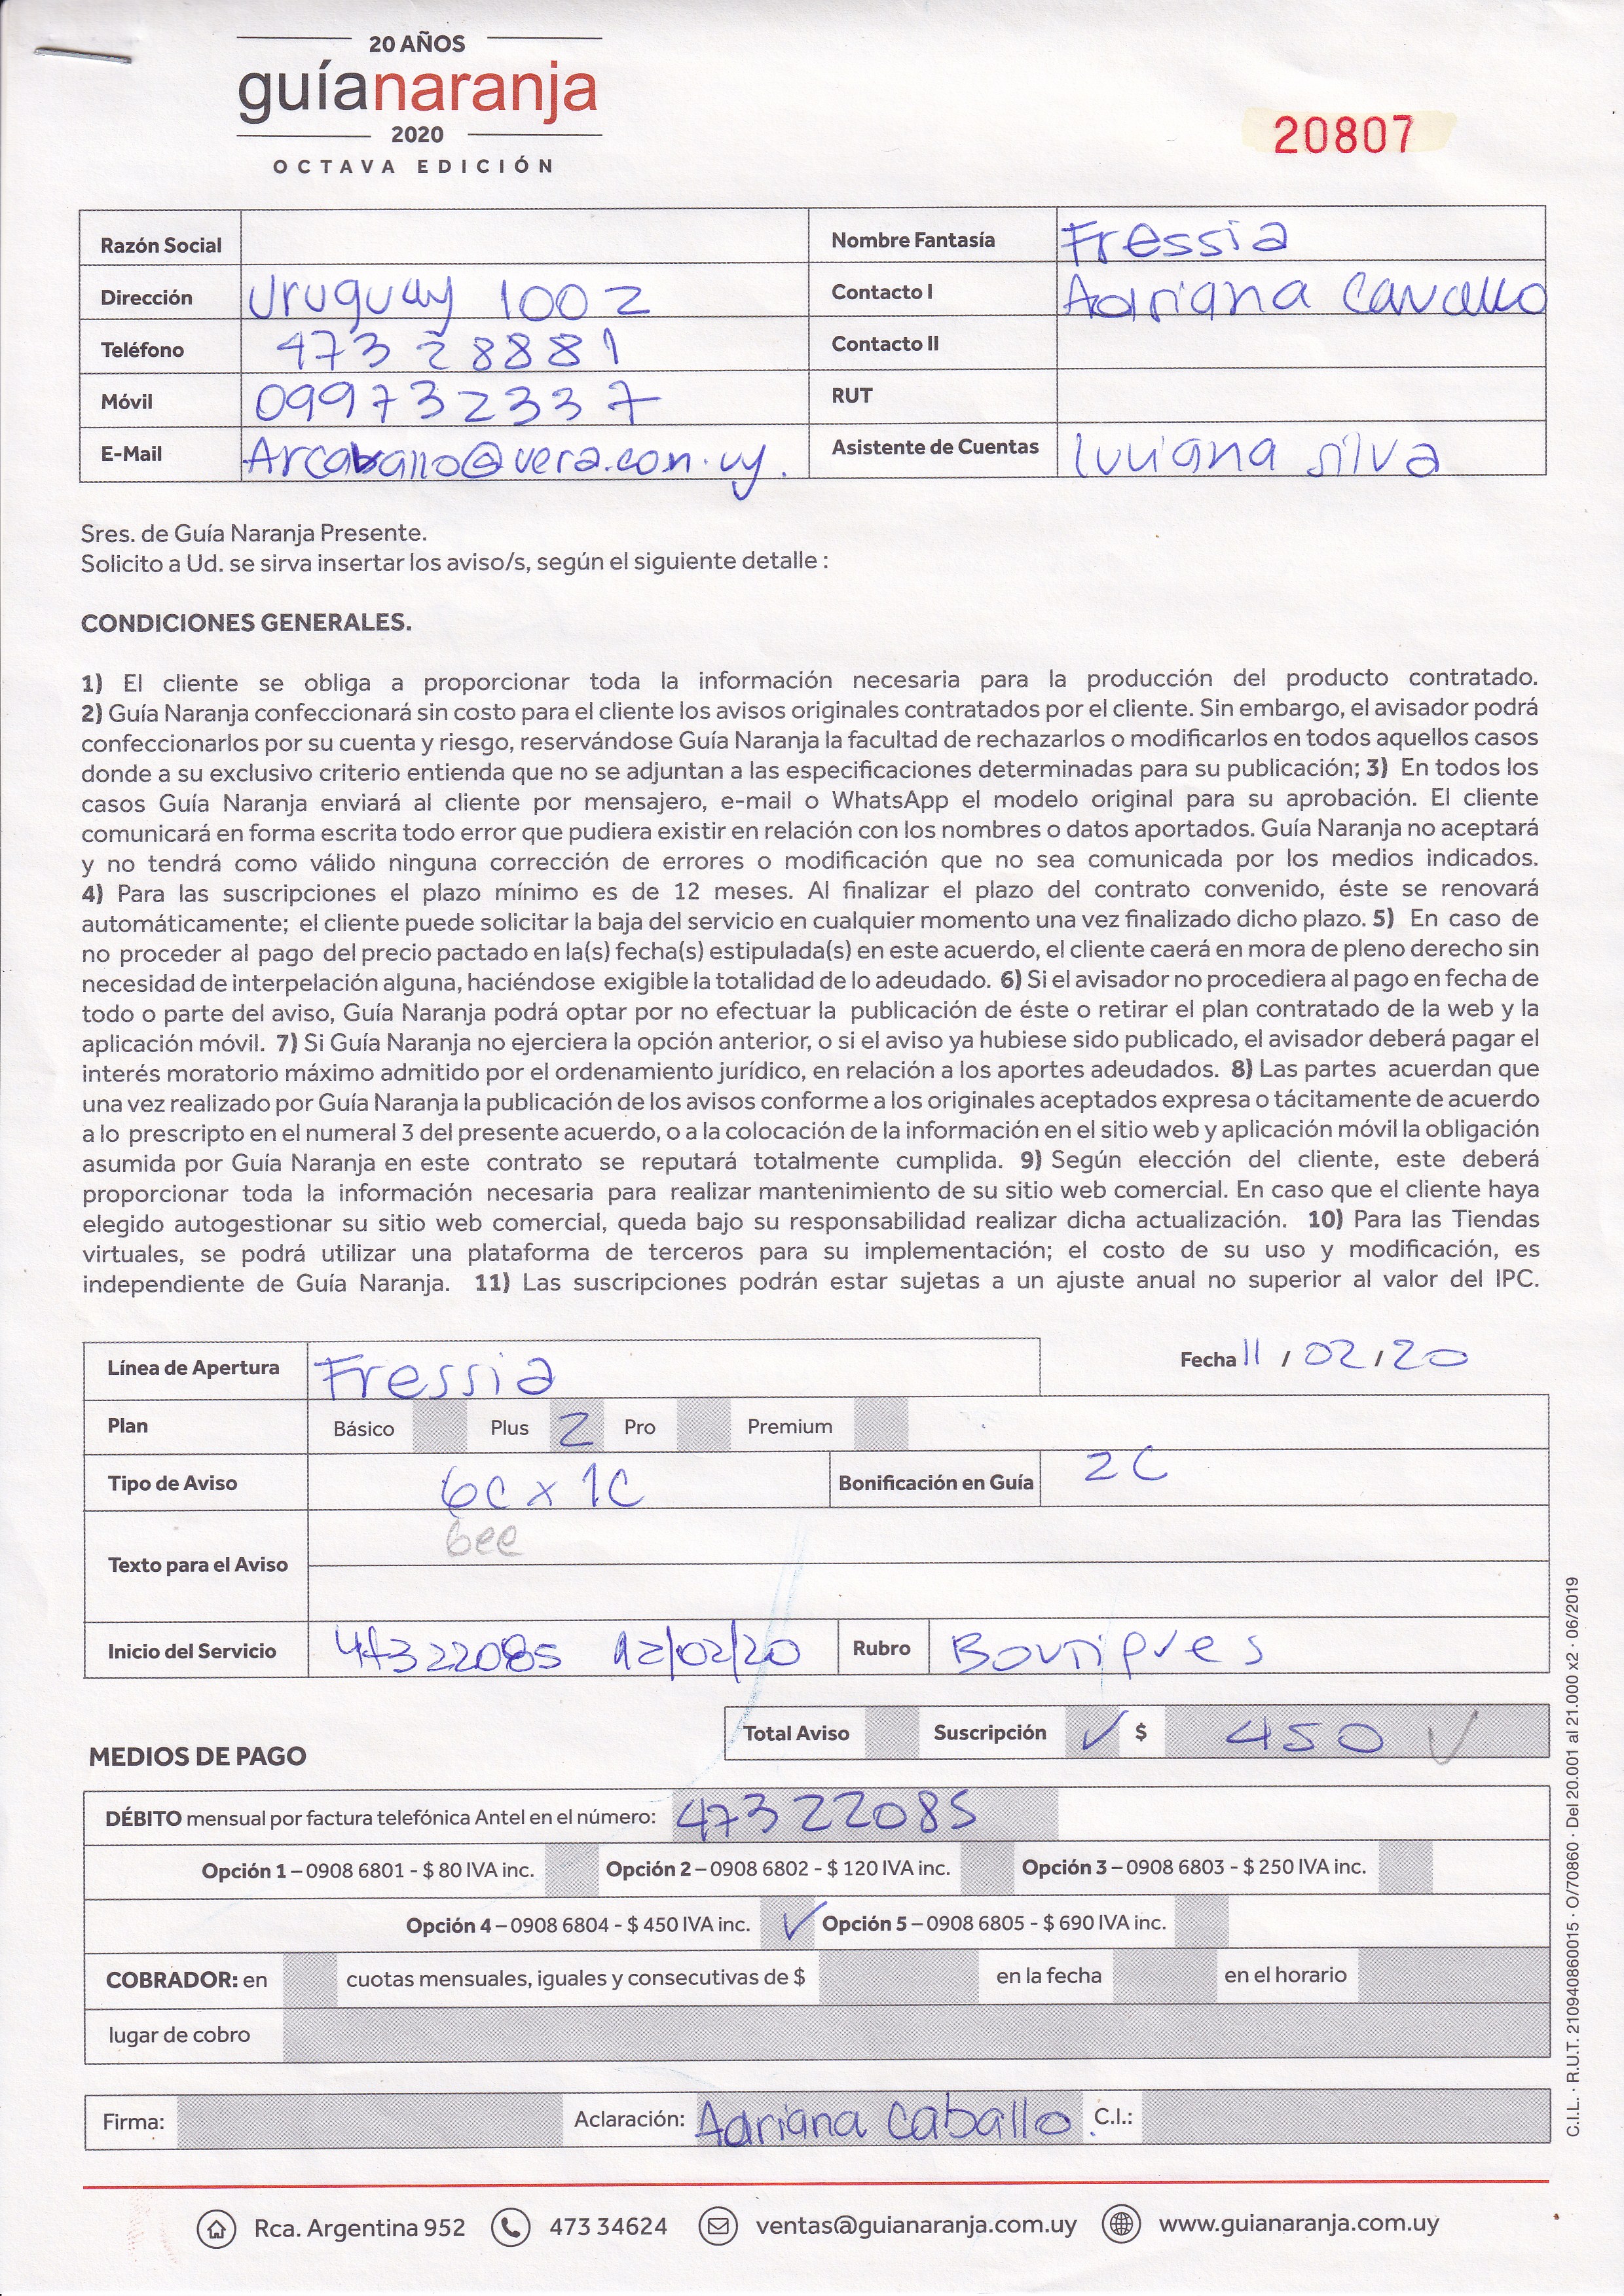 20 AÑOS
guíanaranja
2020
OCTAVA EDICIÓN
20807
Razón Social Nombre Fantasía Fressia
Dirección Uruguay 1002 Contacto I Adriana Cavallo
Teléfono 473 28881 Contacto II
Móvil 099732337 RUT
E-Mail Arcaballo@vera.com.uy. Asistente de Cuentas Luciana Silva
Sres. de Guía Naranja Presente.
Solicito a Ud. se sirva insertar los aviso/s, según el siguiente detalle :
CONDICIONES GENERALES.
1) El cliente se obliga a proporcionar toda la información necesaria para la producción del producto contratado.
2) Guía Naranja confeccionará sin costo para el cliente los avisos originales contratados por el cliente. Sin embargo, el avisador podrá
confeccionarlos por su cuenta y riesgo, reservándose Guía Naranja la facultad de rechazarlos o modificarlos en todos aquellos casos
donde a su exclusivo criterio entienda que no se adjuntan a las especificaciones determinadas para su publicación; 3) En todos los
casos Guía Naranja enviará al cliente por mensajero, e-mail o WhatsApp el modelo original para su aprobación. El cliente
comunicará en forma escrita todo error que pudiera existir en relación con los nombres o datos aportados. Guía Naranja no aceptará
y no tendrá como válido ninguna corrección de errores o modificación que no sea comunicada por los medios indicados.
4) Para las suscripciones el plazo mínimo es de 12 meses. Al finalizar el plazo del contrato convenido, éste se renovará
automáticamente; el cliente puede solicitar la baja del servicio en cualquier momento una vez finalizado dicho plazo. 5) En caso de
no proceder al pago del precio pactado en la(s) fecha(s) estipulada(s) en este acuerdo, el cliente caerá en mora de pleno derecho sin
necesidad de interpelación alguna, haciéndose exigible la totalidad de lo adeudado. 6) Si el avisador no procediera al pago en fecha de
todo o parte del aviso, Guía Naranja podrá optar por no efectuar la publicación de éste o retirar el plan contratado de la web y la
aplicación móvil. 7) Si Guía Naranja no ejerciera la opción anterior, o si el aviso ya hubiese sido publicado, el avisador deberá pagar el
interés moratorio máximo admitido por el ordenamiento jurídico, en relación a los aportes adeudados. 8) Las partes acuerdan que
una vez realizado por Guía Naranja la publicación de los avisos conforme a los originales aceptados expresa o tácitamente de acuerdo
a lo prescripto en el numeral 3 del presente acuerdo, o a la colocación de la información en el sitio web y aplicación móvil la obligación
asumida por Guía Naranja en este contrato se reputará totalmente cumplida. 9) Según elección del cliente, este deberá
proporcionar toda la información necesaria para realizar mantenimiento de su sitio web comercial. En caso que el cliente haya
elegido autogestionar su sitio web comercial, queda bajo su responsabilidad realizar dicha actualización. 10) Para las Tiendas
virtuales, se podrá utilizar una plataforma de terceros para su implementación; el costo de su uso y modificación, es
independiente de Guía Naranja. 11) Las suscripciones podrán estar sujetas a un ajuste anual no superior al valor del IPC.
Línea de Apertura Fressia Fecha 11 / 02 / 20
Plan Básico Plus 2 Pro Premium
Tipo de Aviso 6C x 1C Bonificación en Guía 2C
Texto para el Aviso
Inicio del Servicio 47322085 12/02/20 Rubro Boutiques
Total Aviso Suscripción ✓ $ 450 ✓
MEDIOS DE PAGO
DÉBITO mensual por factura telefónica Antel en el número: 473 22085
Opción 1 – 0908 6801 - $ 80 IVA inc. Opción 2 – 0908 6802 - $ 120 IVA inc. Opción 3 – 0908 6803 - $ 250 IVA inc.
Opción 4 – 0908 6804 - $ 450 IVA inc. ✓ Opción 5 – 0908 6805 - $ 690 IVA inc.
COBRADOR: en cuotas mensuales, iguales y consecutivas de $ en la fecha en el horario
lugar de cobro
Firma: Aclaración: Adriana Caballo. C.I.:
Rca. Argentina 952 473 34624 ventas@guianaranja.com.uy www.guianaranja.com.uy
C.I.L. · R.U.T. 210940860015 · O/70860 · Del 20.001 al 21.000 x2 · 06/2019